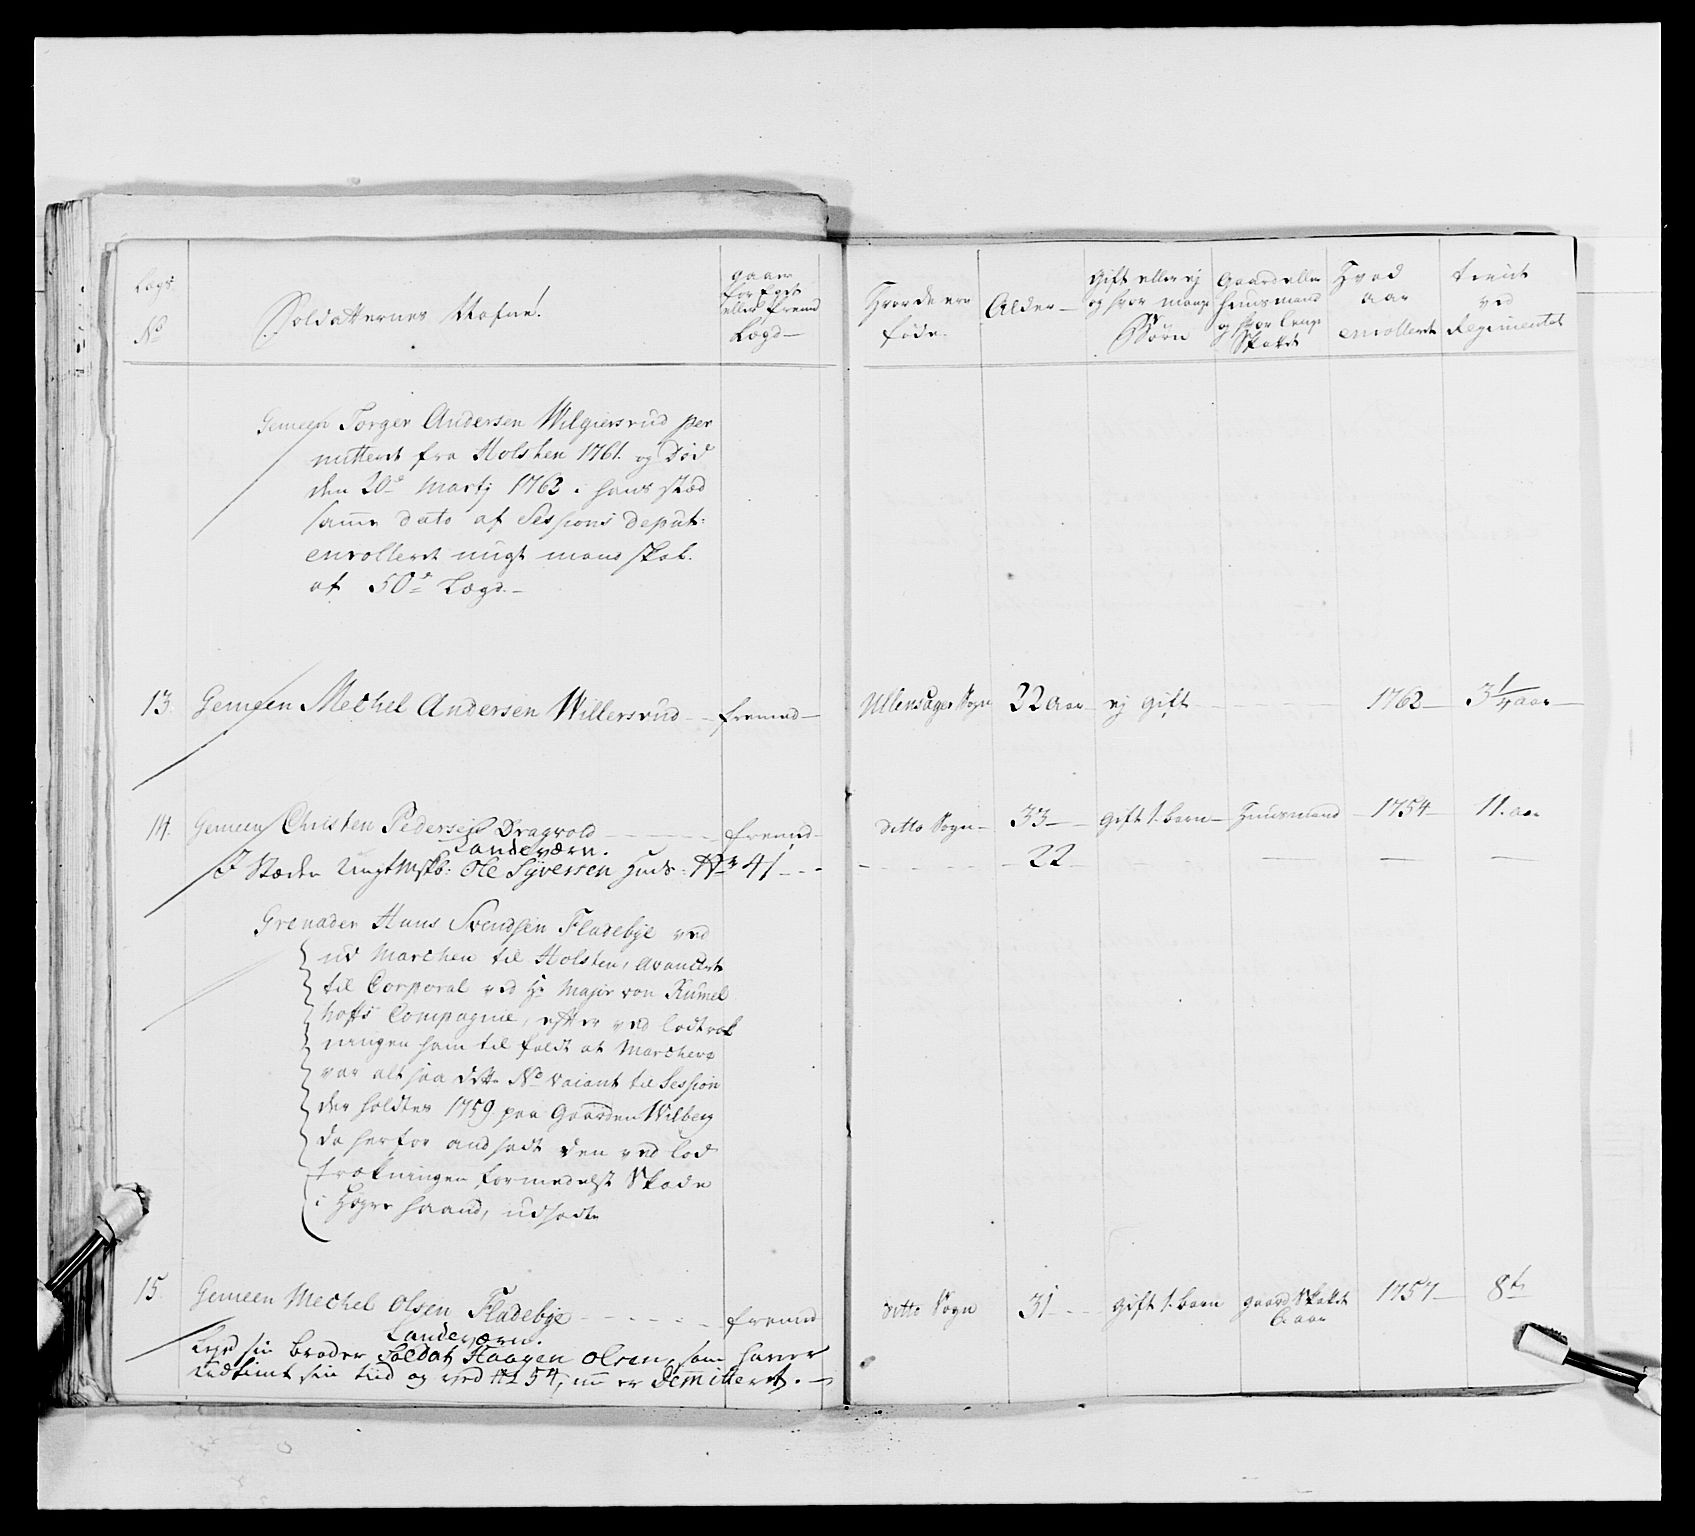 Legs No
Soldatternes Nafne!
gaaer for Eget eller fremd Lægd
Hvor de ere føde.
Alder
Gift eller ej og hvor mange Børn
Gaard eller Huusmand og hvor lenge Skattet
Hvad aar enrolleret
tient ved Regimentet
Gemeen Torger Andersen Wilgiersrud per
mitteret fra Holsten 1761. og Død
den 20de Martj 1762 i hans stæd
samme dato af Sessions deput:
enrolleret ungt mandskab.
af 50de Lægd.
13. Gemeen Mechel Andersen Willersrud fremed Ullensager Sogn 22 aar ej gift 1762 3 1/4 aar
14. Gemeen Christen Pedersen Dragvold fremd ditto Sogn 33 gift 1. barn Huusmand 1754 11. aar
Landeværn.
I Stæden Ungt Mskb: Ole Syversen No 41 22
Grenader Hans Svendsen Fladebye ved
ud Marchen til Holsten, avancert
til Corporal ved Hr Major von Rumel
hoffs Compagnie, efter ved lodtræk
ningen ham til faldt at Marchere
var alt saa dette No vacant til Session
der holdtes 1759 paa Gaarden Wilberg
da herfor andsadt den ved lod
trækningen formedelst Skade
i Høyre haand, udsadte
15. Gemeen Mechel Olsen Fladebye fremd ditto Sogn 31 gift 1. barn gaard Skattet 6 aar 1757 8te
Landeværn.
sin Broder Soldat Haagen Olsen, som haver
Udtient sin tiid og ved No 54, nu er Demitteret.